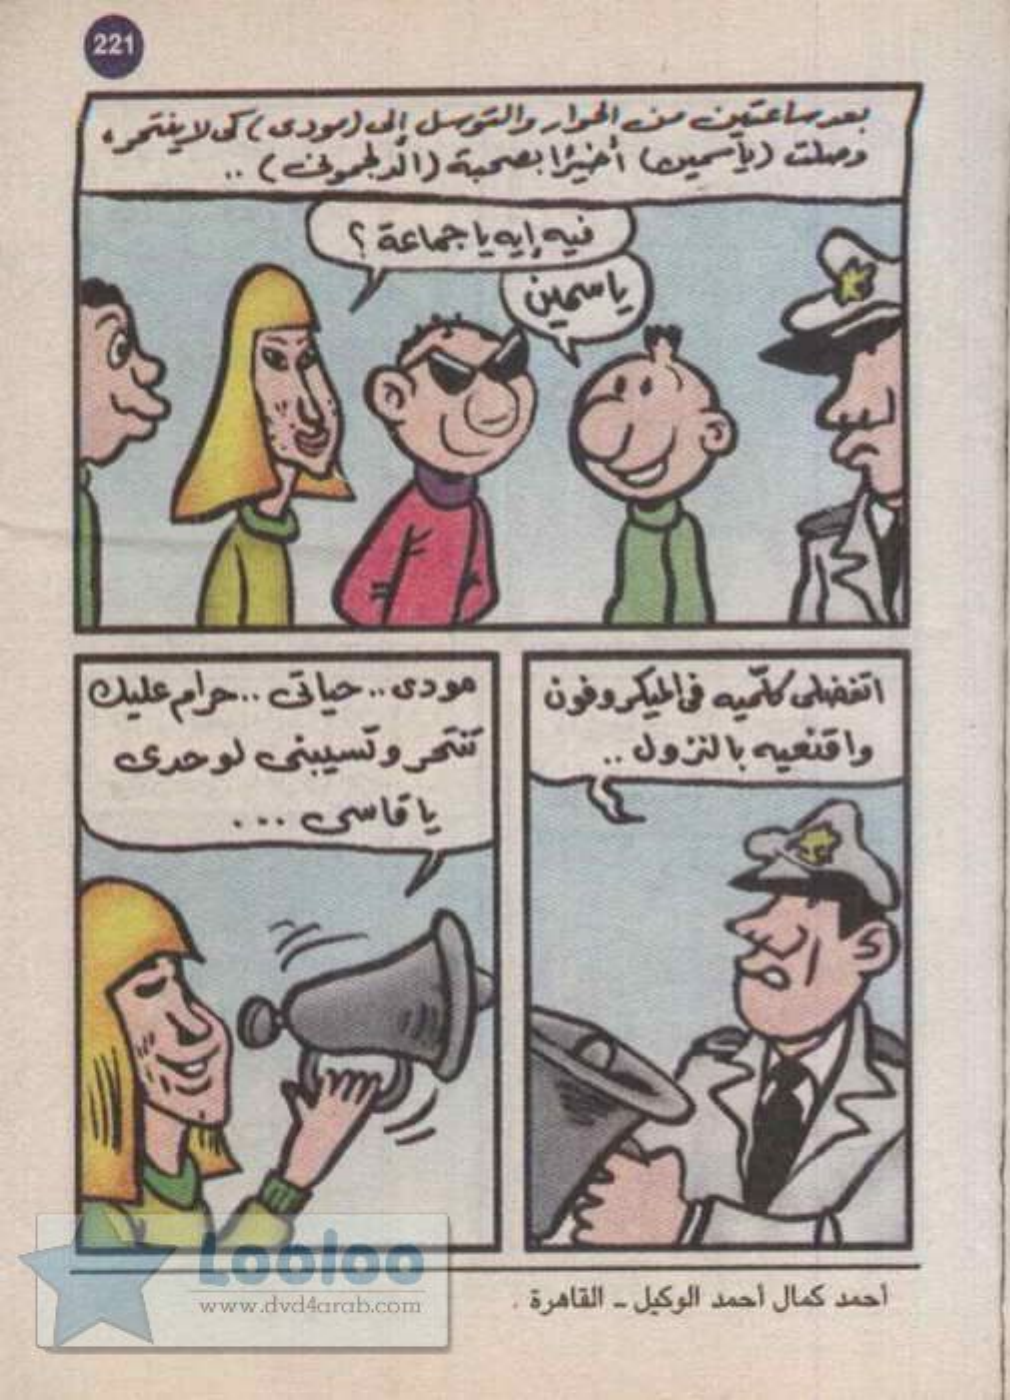 221
بعد ساعتين من الحوار والتوسل إلى (مودى) كى لا ينتحر،
وصلت (ياسمين) أخيرًا بصحبة (الدلجمونى) ..
فيه إيه يا جماعة ؟
ياسمين
اتفضلى كلّميه فى الميكروفون
واقنعيه بالنزول ..
مودى .. حياتى .. حرام عليك
تنتحر وتسيبنى لوحدى
يا قاسى ...
أحمد كمال أحمد الوكيل ـ القاهرة .
Looloo
www.dvd4arab.com